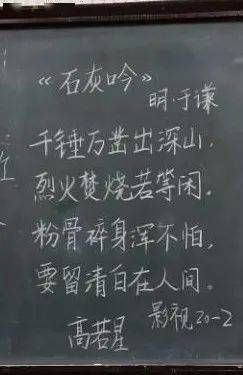 《石灰吟》
明·于谦
千锤万凿出深山，
烈火焚烧若等闲。
粉骨碎身浑不怕，
要留清白在人间。
高若星 影视20-2